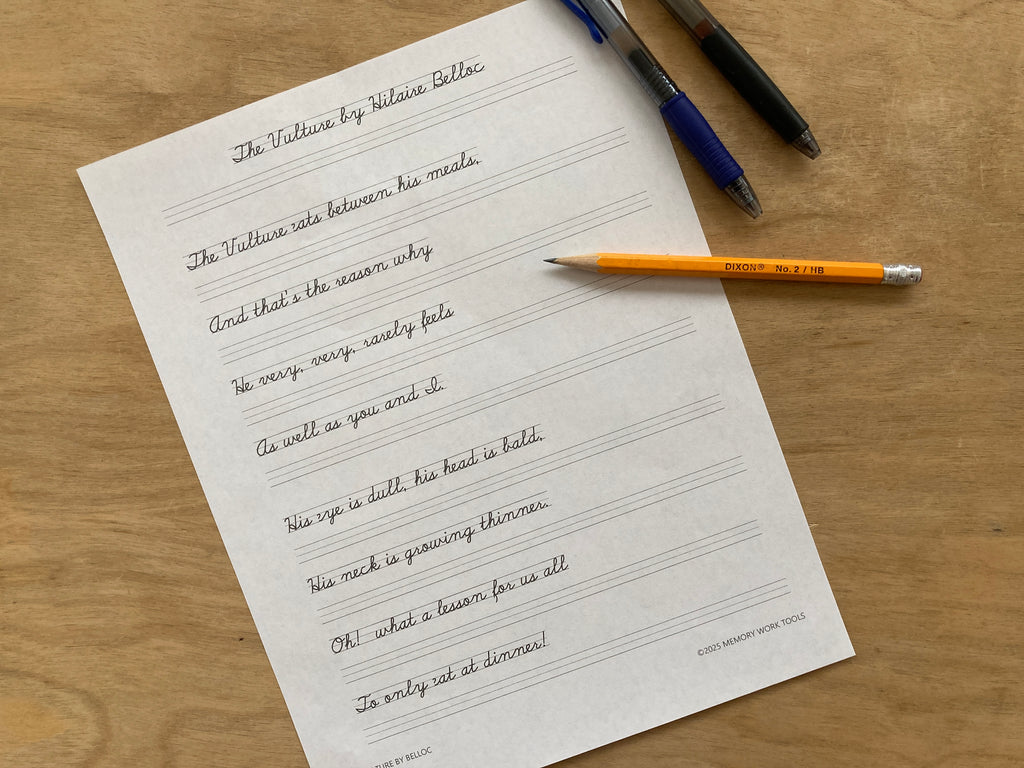 The Vulture by Hilaire Belloc
The Vulture eats between his meals,
And that's the reason why
He very, very, rarely feels
As well as you and I.
His eye is dull, his head is bald,
His neck is growing thinner.
Oh! what a lesson for us all
To only eat at dinner!
©2025 MEMORY WORK TOOLS
TURE BY BELLOC
DIXON® No. 2 / HB